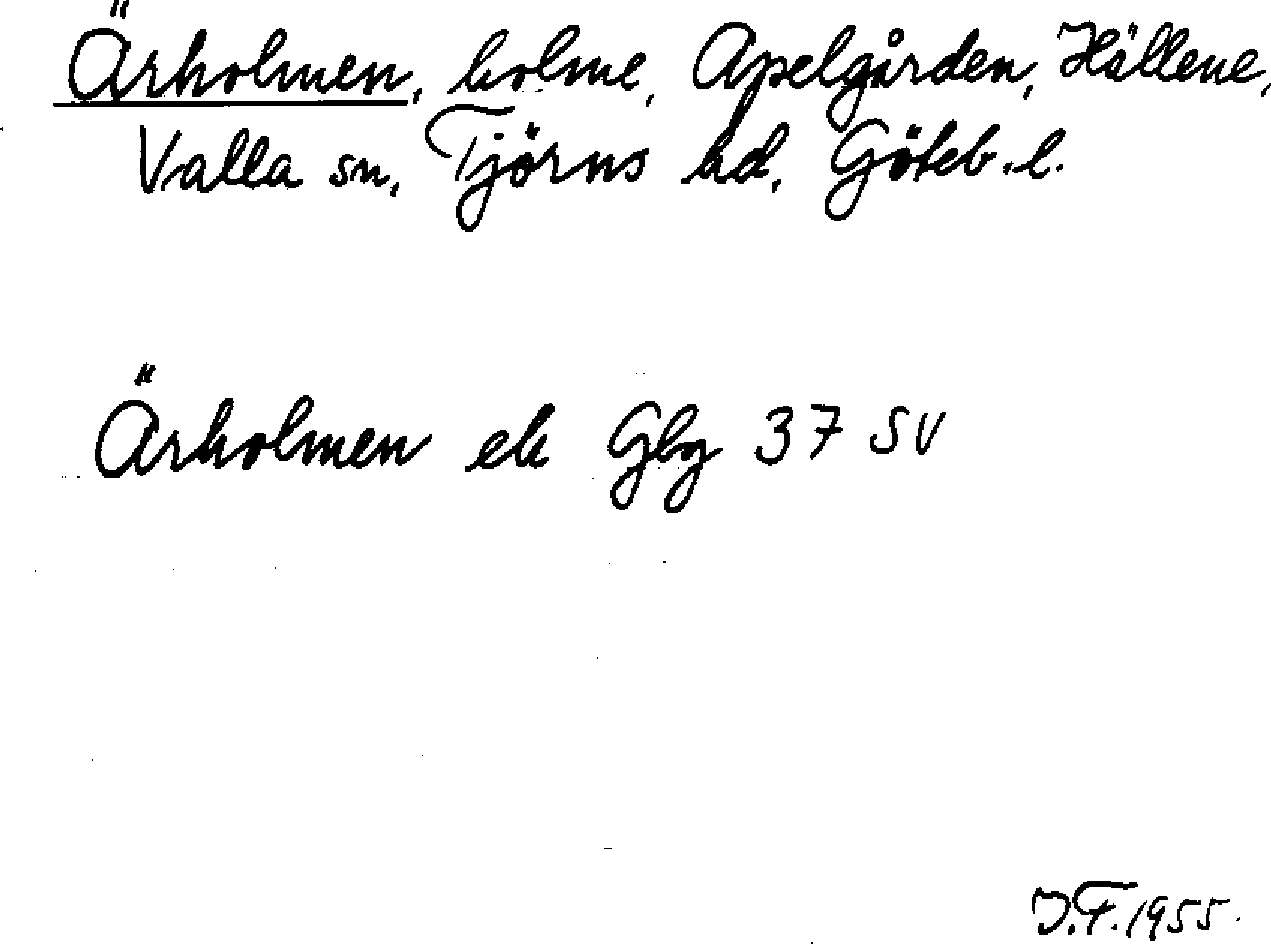 Ärholmen, holme, Apelgården, Hällene,
Valla sn, Tjörns hd, Göteb. l.
Ärholmen ek Gbg 37 SV
J.F. 1955.